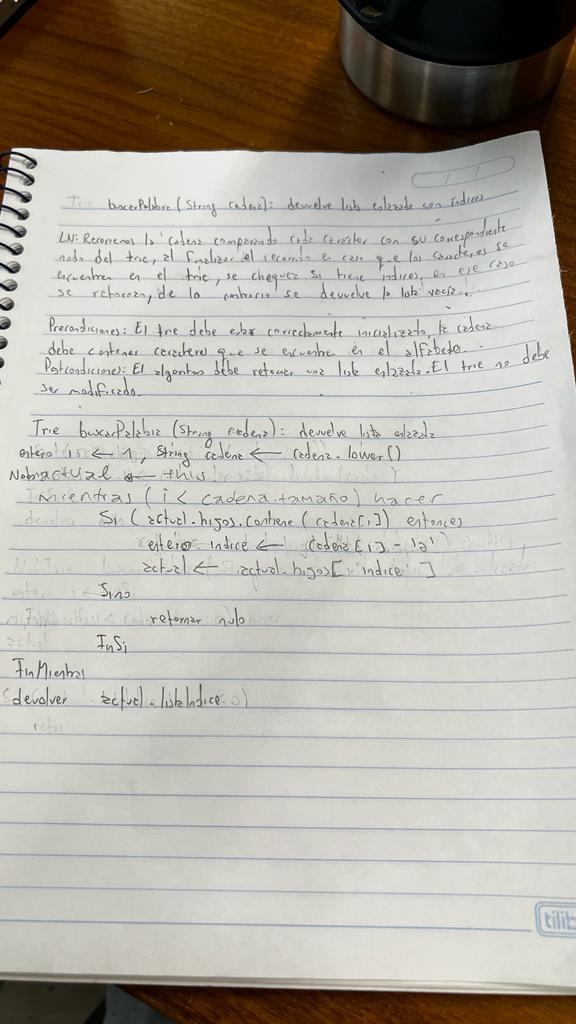 Trie buscarPalabra (String cadena): devuelve lista enlazada con índices
LN: Recorremos la cadena comparando cada carácter con su correspondiente
nodo del trie, al finalizar el recorrido en caso que los caracteres se
encuentren en el trie, se chequea si tiene indices, en ese caso
se retornan, de lo contrario se devuelve la lista vacía.
Precondiciones: El trie debe estar correctamente inicializado, la cadena
debe contener caracteres que se encuentran en el alfabeto.
Postcondiciones: El algoritmo debe retornar una lista enlazada. El trie no debe
ser modificado.
Trie buscarPalabra (String cadena): devuelve lista enlazada
entero i ← 1, String cadena ← cadena.lower()
Nodo actual ← this
mientras (i < cadena.tamaño) hacer
Si (actual.hijos.contiene (cadena[i]) entonces
entero indice ← (cadena[i] - 'a')
actual ← actual.hijos[ indice ]
Sino
retornar nulo
FinSi
FinMientras
devolver actual.listaIndice
tilib